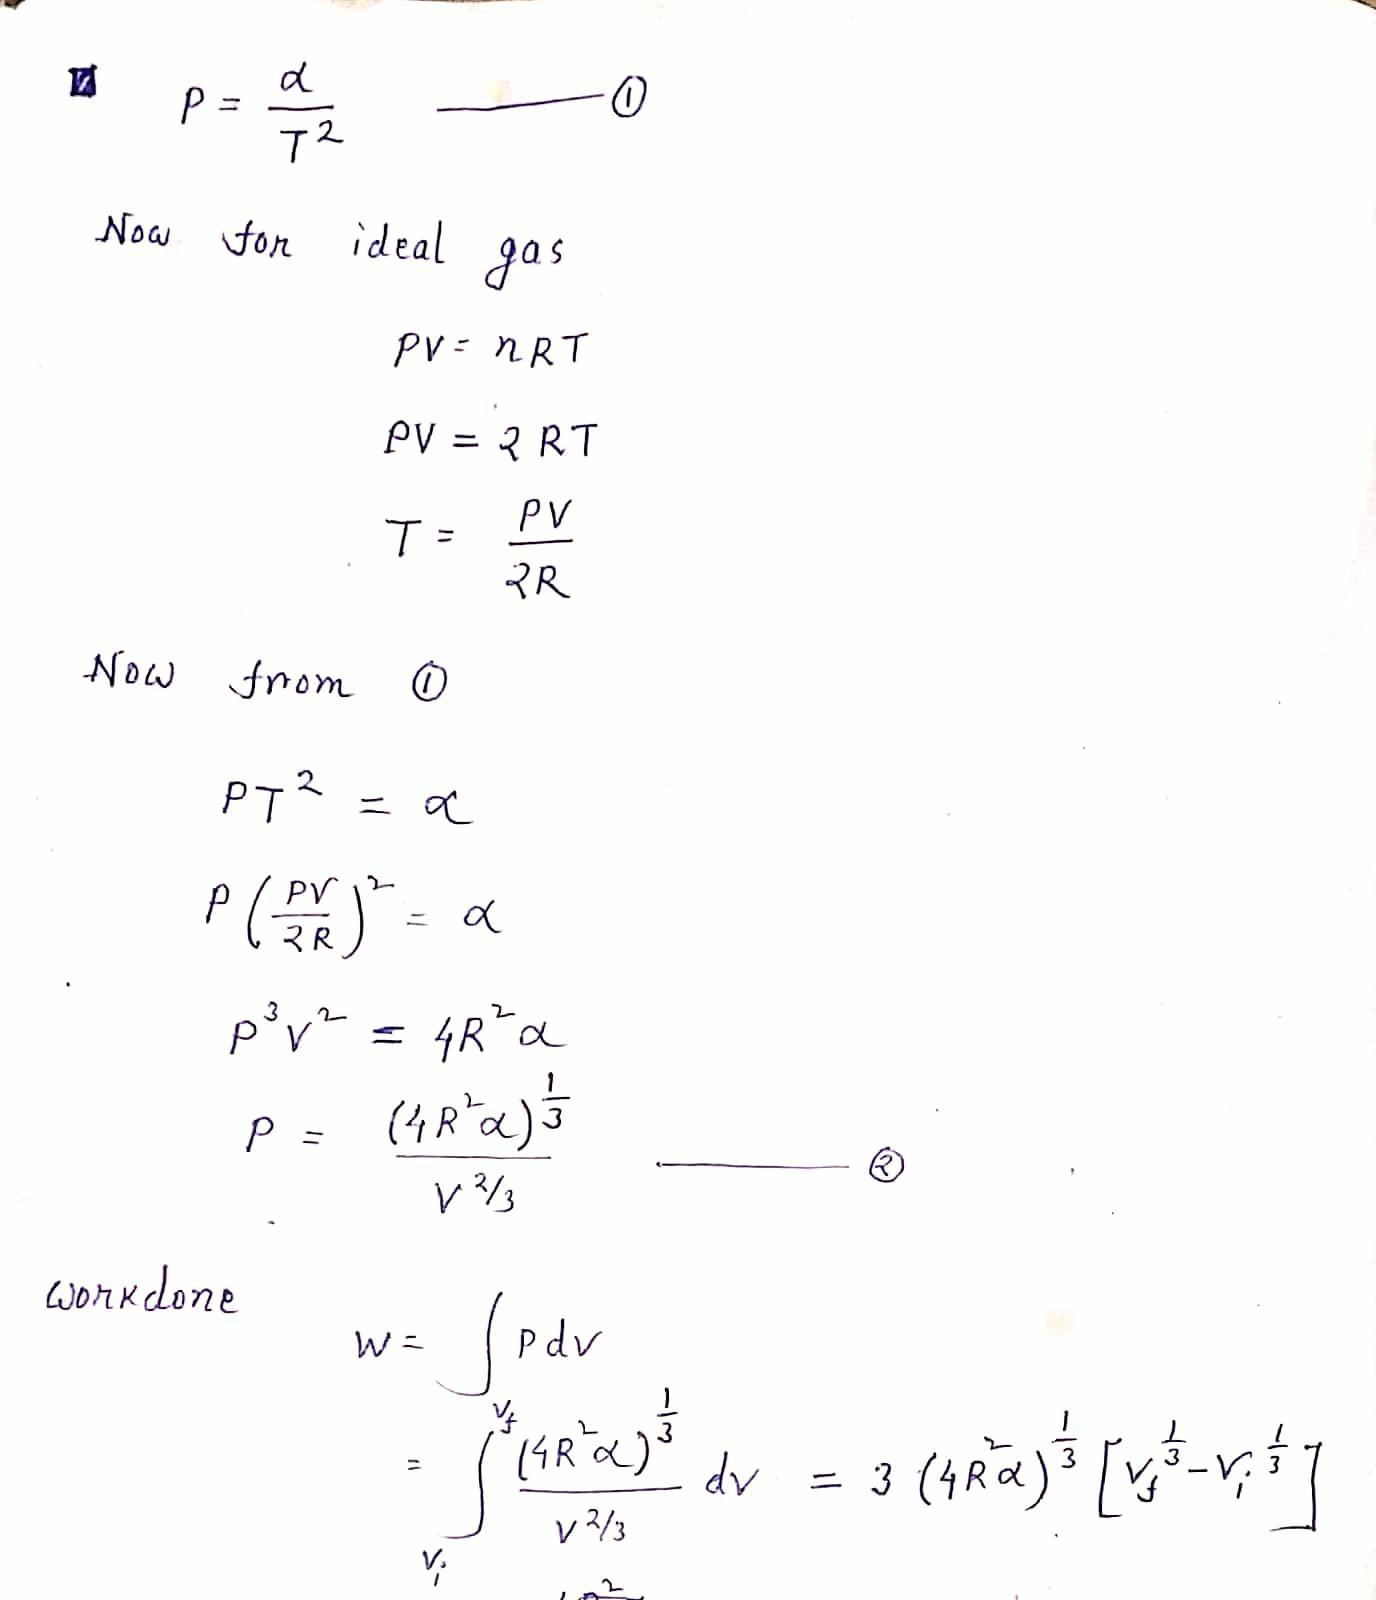 P = α / T² ——— ①
Now for ideal gas
PV = nRT
PV = 2RT
T = PV / 2R
Now from ①
PT² = α
P (PV / 2R)² = α
P³V² = 4R²α
P = (4R²α)^(1/3) / V^(2/3) ——— ②
Workdone
W = ∫ P dv
= ∫_{Vi}^{Vf} (4R²α)^(1/3) / V^(2/3) dv = 3 (4R²α)^(1/3) [Vf^(1/3) – Vi^(1/3)]